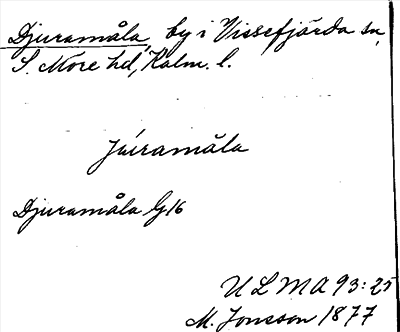 Djuramåla, by i Vissefjärda sn,
S. Möre hd, Kalm. l.
Júramåla
Djuramåla G16
ULMA 93:25
M. Jonsson 1877